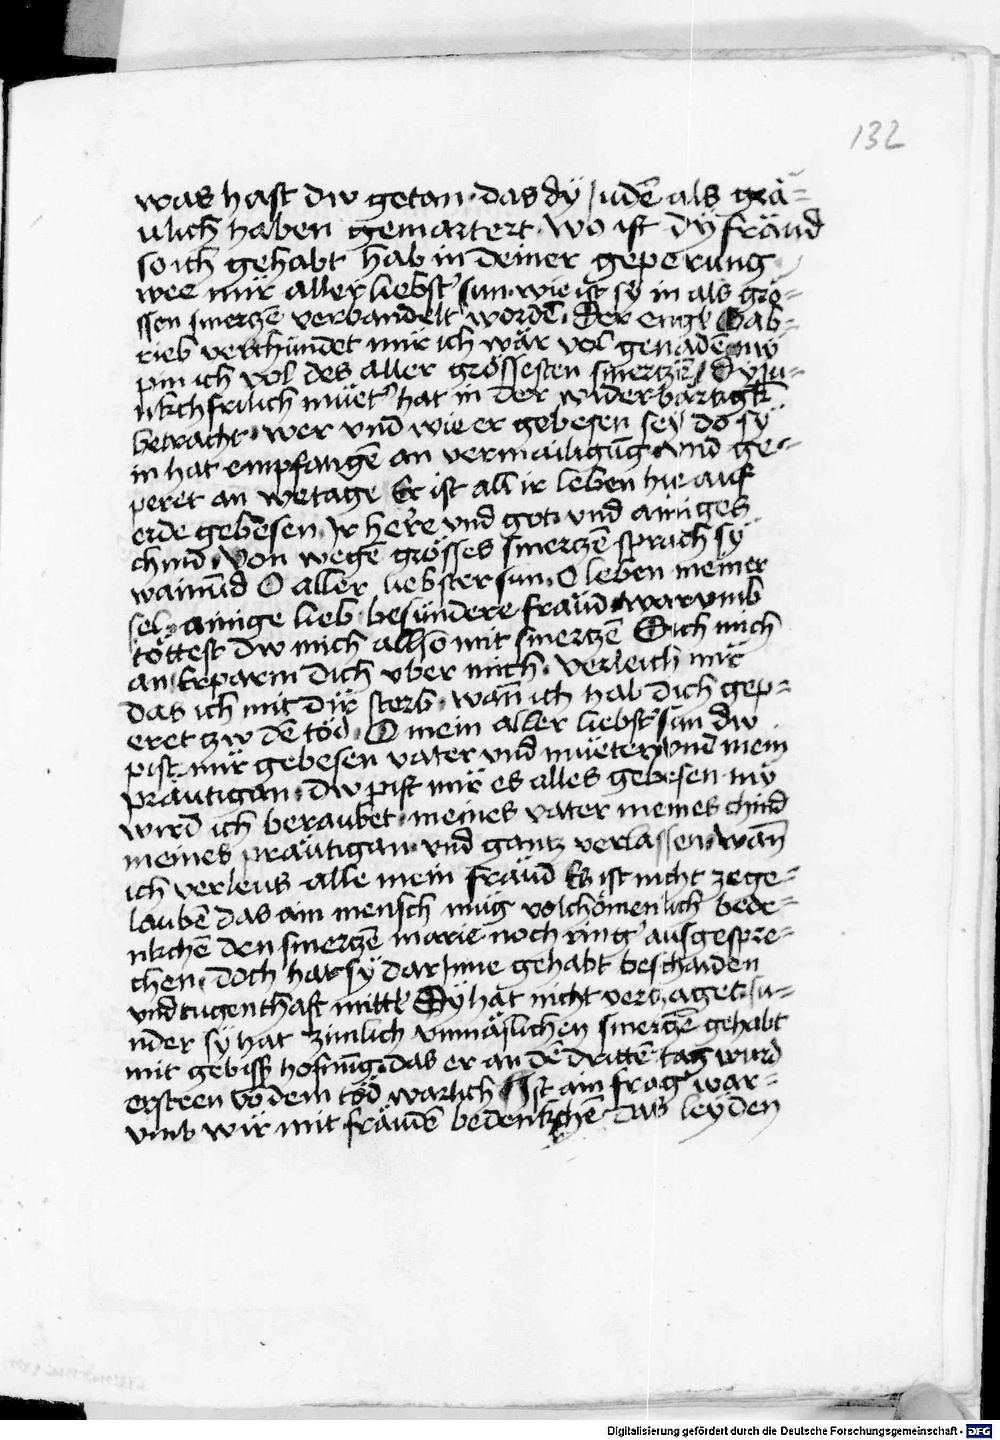 132
was hast dw getan · das dÿ Judē als grä=
ulich haben gemartert · wo ist dÿ fräud
so ich gehabt hab in deiner geperung
wee mir aller liebst' sun · wie ist sÿ in als grö=
ssen smertzē verbandelt wordē · Der engl Gab=
riel verchündet mir ich wär vol genadē nw
pin ich vol des aller grössesten smertzē / Dÿ ju=
nkchfrilich müet' hat in der widerbärtigk
betracht · wer vnd wie er gebesen seÿ do sÿ
in hat empfangē an vermailigūg · vnd ge=
peret an wetage Er ist all ir leben hie auf
erde gebesen · Jr herre vnd got · vnd ainiges
chind · Von wegē grösses smertzē sprach sÿ
wainūd O aller liebster sun · O leben meiner
sel · ainige lieb · besündere fräud · warvmb
töttest dw mich allso mit smertzē Sich mich
an Erparm dich vber mich · verleich mir
das ich mit dir sterb · wañ ich hab dich gep=
eret tzw dē töd · O mein aller liebst' sun dw
pist mir gebesen vater vnd müeter vnd mein
präutigan · dw pist mir es alles gebesen · nw
wird ich beraubet · meines vater meines chind
meines präutigan · vnd gantz verlassen · wañ
ich verleus alle mein fräud Es ist nicht zege=
laubē das ain mensch müg volchömenlich bede=
nkchē den smertzē marie noch ring' ausgespre=
chen · doch hat sÿ dar Inne gehabt beschaiden
vnd tugenthaft mittl Sÿ hat nicht vertzaget · su=
nder sÿ hat zimlich vnmäslichen smertzē gehabt
mit gebiss hofnūg · das er an dē drittē tag wurd
ersteen vō dem töd warlich Hst ain frag war=
vmb wir mit fräudē bedenkchē das leÿden
Digitalisierung gefördert durch die Deutsche Forschungsgemeinschaft - DFG